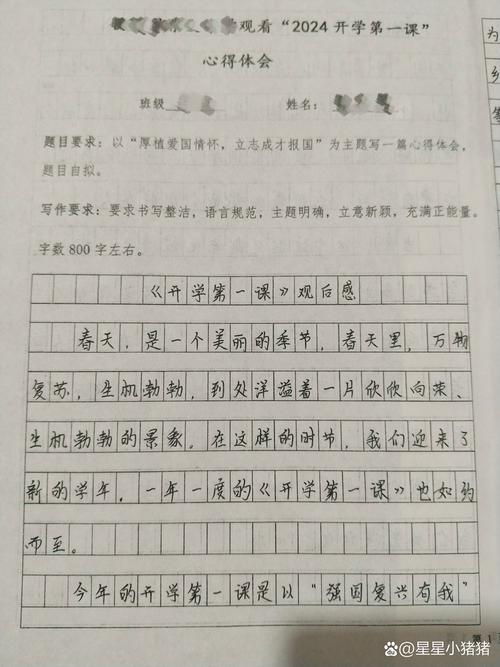 观看“2024开学第一课”
心得体会
班级 姓名：
题目要求：以“厚植爱国情怀，立志成才报国”为主题写一篇心得体会，
题目自拟。
写作要求：要求书写整洁，语言规范，主题明确，立意新颖，充满正能量。
字数800字左右。
《开学第一课》观后感
春天，是一个美丽的季节，春天里，万物
复苏，生机勃勃，到处洋溢着一片欣欣向荣、
生机勃勃的景象。在这样的时节，我们迎来了
新的学年，一年一度的《开学第一课》也如约
而至。
今年的开学第一课是以“强国复兴有我”
为
乡
第1
@星星小猪猪